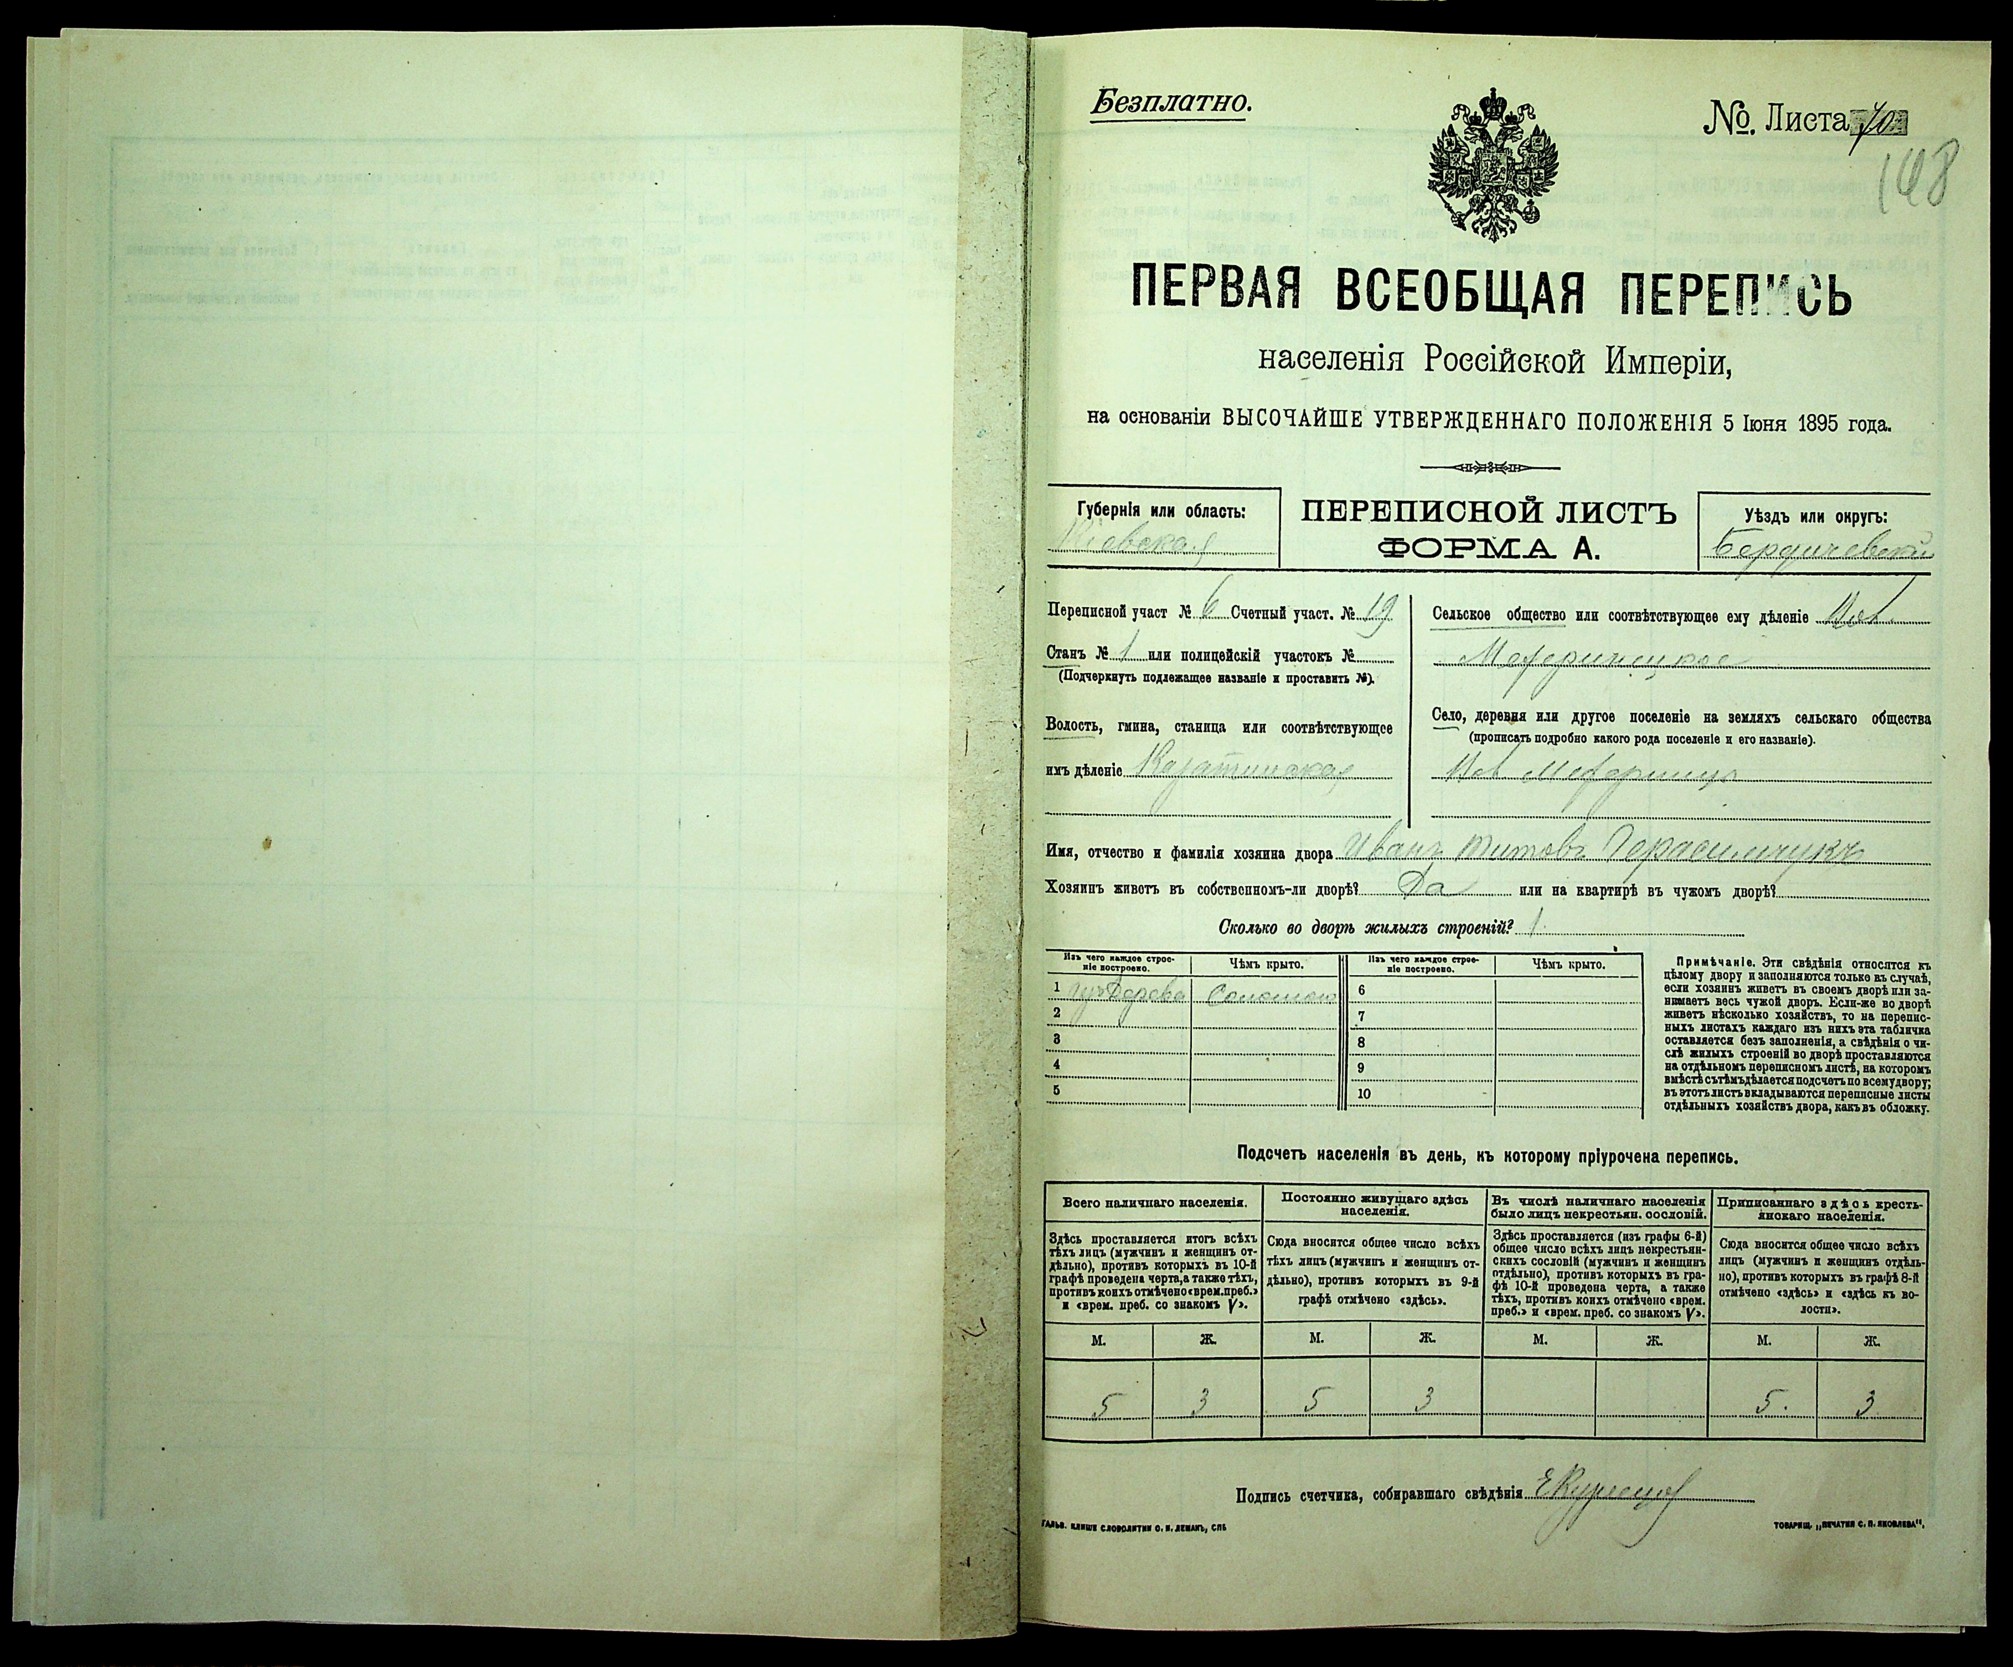 Безплатно.
№. Листа 70
168
ПЕРВАЯ ВСЕОБЩАЯ ПЕРЕПИСЬ
населенія Россійской Имперіи,
на основаніи ВЫСОЧАЙШЕ УТВЕРЖДЕННАГО ПОЛОЖЕНІЯ 5 Іюня 1895 года.
Губернія или область:
Кіевская
ПЕРЕПИСНОЙ ЛИСТЪ
ФОРМА А.
Уѣздъ или округъ:
Бердичевскій
Переписной участ № 6 Счетный участ. № 19
Станъ № 1 или полицейскій участокъ №
(Подчеркнуть подлежащее названіе и проставить №).
Волость, гмина, станица или соотвѣтствующее
имъ дѣленіе Казатинская
Сельское общество или соотвѣтствующее ему дѣленіе
Село, деревня или другое поселеніе на земляхъ сельскаго общества
(прописать подробно какого рода поселеніе и его названіе).
Имя, отчество и фамилія хозяина двора Иванъ Титовъ Герасимчукъ
Хозяинъ живетъ въ собственномъ-ли дворѣ? Да или на квартирѣ въ чужомъ дворѣ?
Сколько во дворѣ жилыхъ строеній? 1
Изъ чего каждое строе-
ніе построено.
Чѣмъ крыто.
Изъ чего каждое строе-
ніе построено.
Чѣмъ крыто.
1 изъ Дерева Соломою 6
2 7
3 8
4 9
5 10
Примѣчаніе. Эти свѣдѣнія относятся къ
цѣлому двору и заполняются только въ случаѣ,
если хозяинъ живетъ въ своемъ дворѣ или за-
нимаетъ весь чужой дворъ. Если-же во дворѣ
живетъ нѣсколько хозяйствъ, то на перепис-
ныхъ листахъ каждаго изъ нихъ эта табличка
оставляется безъ заполненія, а свѣдѣнія о чи-
слѣ жилыхъ строеній во дворѣ проставляются
на отдѣльномъ переписномъ листѣ, на которомъ
вмѣстѣ съ тѣмъ дѣлается подсчетъ по всему двору;
въ этотъ листъ вкладываются переписные листы
отдѣльныхъ хозяйствъ двора, какъ въ обложку.
Подсчетъ населенія въ день, къ которому пріурочена перепись.
Всего наличнаго населенія.
Здѣсь проставляется итогъ всѣхъ
тѣхъ лицъ (мужчинъ и женщинъ от-
дѣльно), противъ которыхъ въ 10-й
графѣ проведена черта, а также тѣхъ,
противъ коихъ отмѣчено «врем. преб.»
и «врем. преб. со знакомъ V».
Постоянно живущаго здѣсь
населенія.
Сюда вносится общее число всѣхъ
тѣхъ лицъ (мужчинъ и женщинъ от-
дѣльно), противъ которыхъ въ 9-й
графѣ отмѣчено «здѣсь».
Въ числѣ наличнаго населенія
было лицъ некрестьян. сословій.
Здѣсь проставляется (изъ графы 6-й)
общее число всѣхъ лицъ некрестьян-
скихъ сословій (мужчинъ и женщинъ
отдѣльно), противъ которыхъ въ гра-
фѣ 10-й проведена черта, а также
тѣхъ, противъ коихъ отмѣчено «врем.
преб.» и «врем. преб. со знакомъ V».
Приписаннаго здѣсь кресть-
янскаго населенія.
Сюда вносится общее число всѣхъ
лицъ (мужчинъ и женщинъ отдѣль-
но), противъ которыхъ въ графѣ 8-й
отмѣчено «здѣсь» и «здѣсь къ во-
лости».
М. Ж. М. Ж. М. Ж. М. Ж.
5 3 5 3 5. 3
Подпись счетчика, собиравшаго свѣдѣнія
ГАЛЬВ. КЛИШЕ СЛОВОЛИТНИ О. И. ЛЕМАНЪ, СПБ
ТОВАРИЩ. „ПЕЧАТНЯ С. П. ЯКОВЛЕВА“.